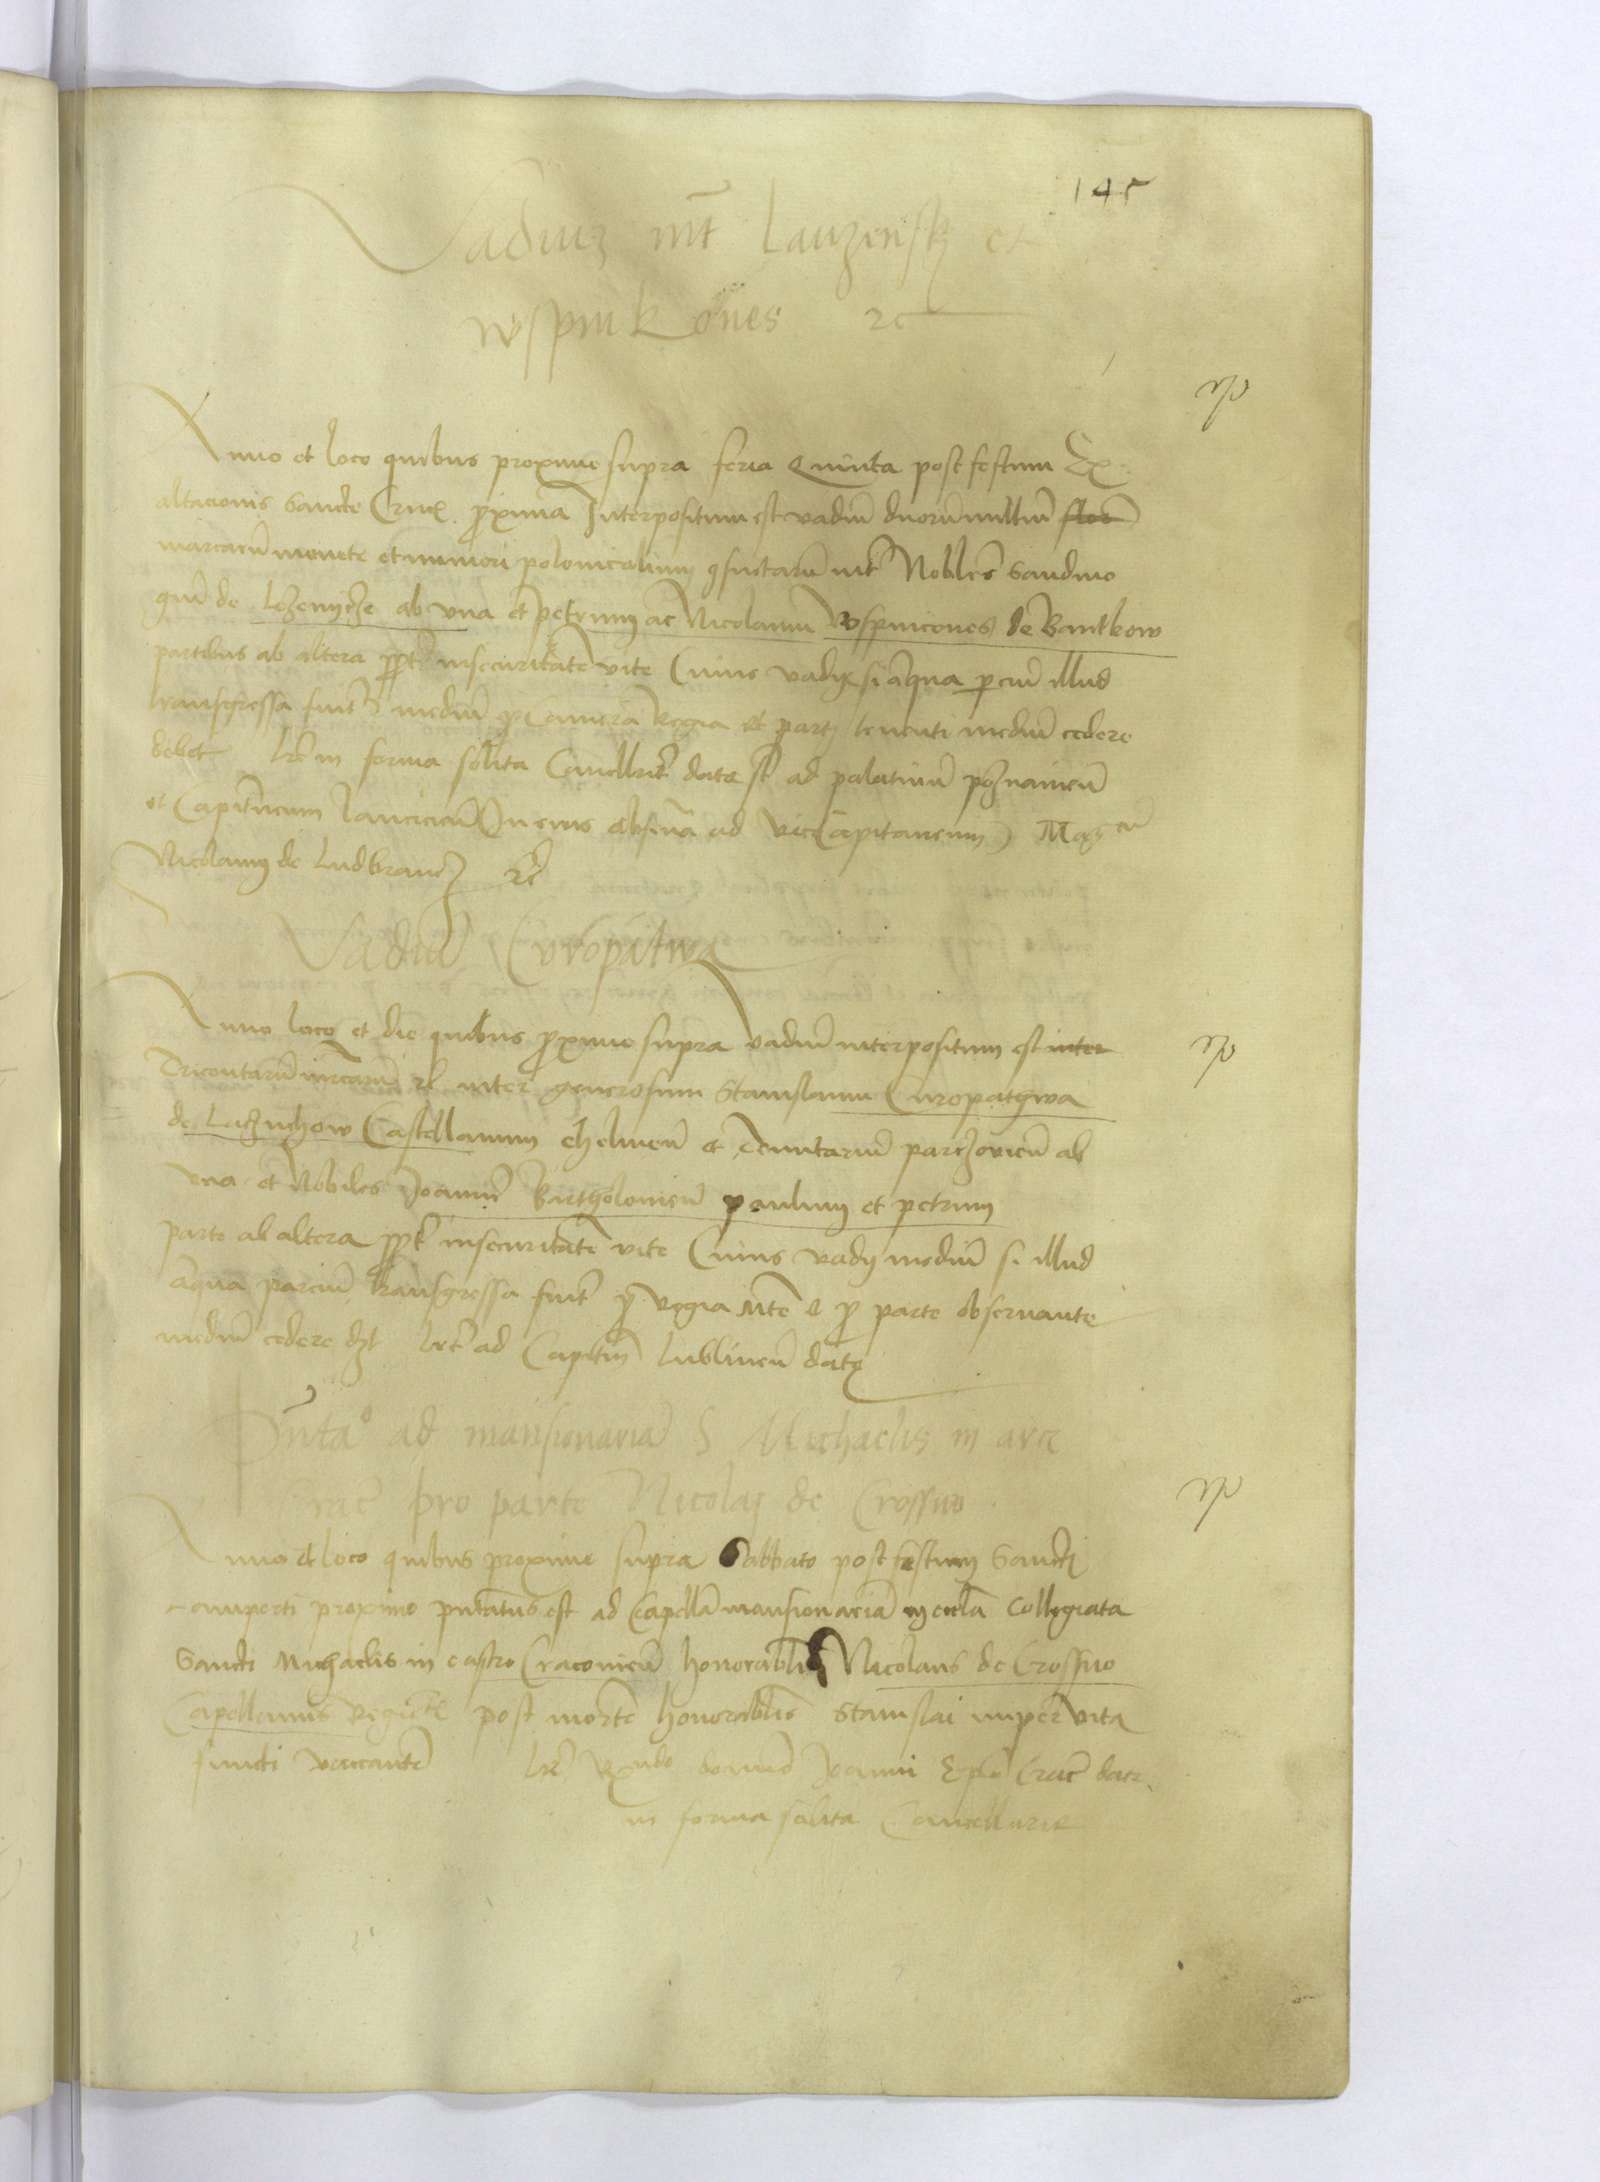 145
Vadium int Lauzensky et
Wspinkones etc
Anno et loco quibus proxime supra feria Quinta post festum Ex-
altacionis Sancte Crucis proxima Interpositum est vadium duorum millium flor
marcarum monete et numeri polonicalium inter Nobiles
de ab una et petrum ac Nicolaum Wspincones de Bantkow
partibus ab altera ppt insecuritatem vite Cuius vadii si aliqua parcium illud
transgressa fuerit medium pro Camera Regia et parti tenenti medium cedere
debet Lre in forma solita Cancellarie date st ad palatinum poznaniens
et Capitaneum Lanciciens In eius absencia ad viceCapitaneum Mag cu
Nicolaum de Ludbrancz etc
Vadium Curopatwa
Anno loco et die quibus proxime supra vadium interpositum est inter
Tricentarum marcarum etc inter generosum Stanislaum Curopathwa
de Laczuchow Castellanum chelmens et Tenutarium parczoviens ab
una et Nobiles Joannem Bartholomeum paulum et petrum
parte ab altera ppt insecuritatem vite Cuius vadii medium si illud
aliqua parcium transgressa fuerit pro Regia Mte et pro parte observante
medium cedere dz Lre ad Capitm Lubliniens date
Pnta ad mansionariam S Michaelis in arce
Crac pro parte Nicolai de Crossno
Anno et loco quibus proxime supra Sabbato post festum Sancti
Lamperti proximo pntatus est ad Capellam mansionariam in eccla Collegiata
Sancti Michaelis in castro Cracoviens honorabilis Nicolaus de Crossno
Capellanus Regius post mortem honorabilis Stanislai nuper vita
functi vaccantem Lre Rndo domino Joanni Epo Crac date
in forma solita Cancellarie